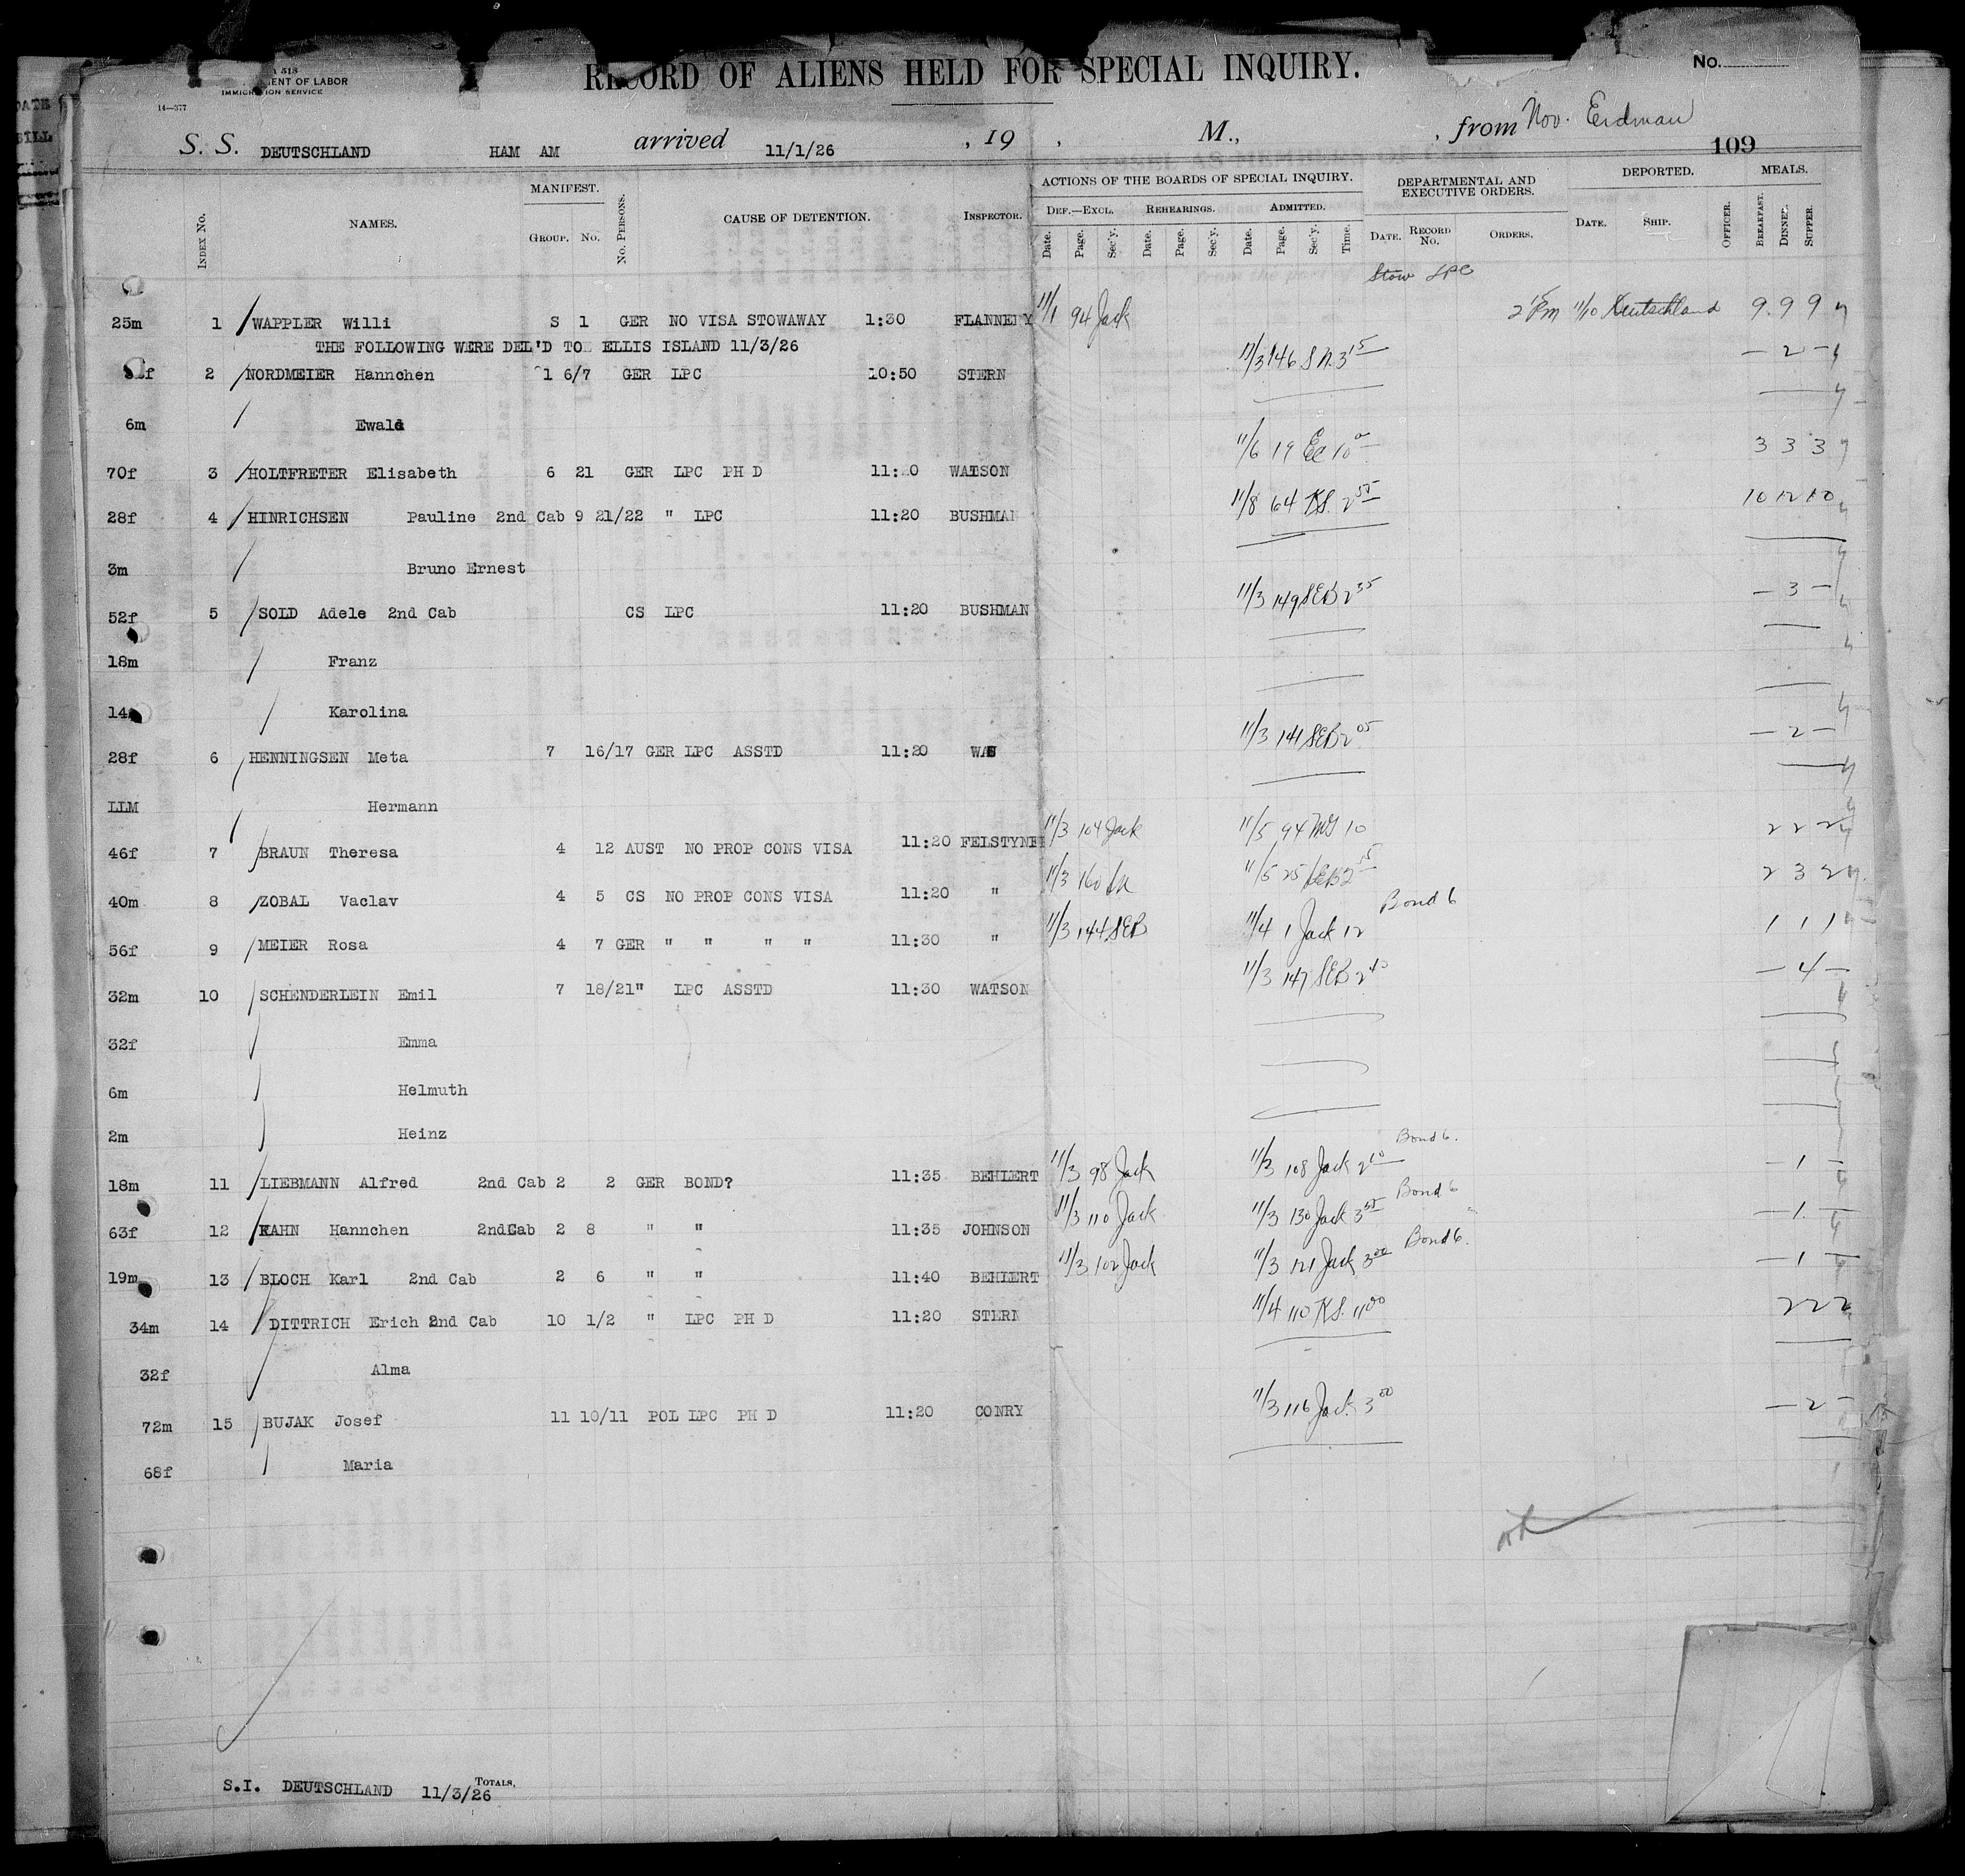 RECORD OF ALIENS HELD FOR SPECIAL INQUIRY.
No.
513
ENT OF LABOR
IMMIGRATION SERVICE
14—377
S. S. DEUTSCHLAND HAM AM arrived 11/1/26 , 19 , M., , from Nov. Erdman
109
INDEX No. NAMES. MANIFEST. GROUP. No. No. PERSONS. CAUSE OF DETENTION. INSPECTOR. ACTIONS OF THE BOARDS OF SPECIAL INQUIRY. DEPARTMENTAL AND EXECUTIVE ORDERS. DEPORTED. MEALS.
DEF.—EXCL. REHEARINGS. ADMITTED.
Date. Page. Sec'y. Date. Page. Sec'y. Date. Page. Sec'y. Time. DATE. RECORD No. ORDERS. DATE. SHIP. OFFICER. BREAKFAST. DINNER. SUPPER.
Stow LPC
25m 1 WAPPLER Willi S 1 GER NO VISA STOWAWAY 1:30 FLANNERY 11/1 94 Jack 2 15 Pm 11/10 Deutschland 9 9 9
THE FOLLOWING WERE DEL'D TO ELLIS ISLAND 11/3/26
f 2 NORDMEIER Hannchen 1 6/7 GER LPC 10:50 STERN 11/3 146 S N. 3 15 — 2 —
6m Ewald
70f 3 HOLTFRETER Elisabeth 6 21 GER LPC PH D 11: 0 WATSON 11/6 19 Ec 10 3 3 3
28f 4 HINRICHSEN Pauline 2nd Cab 9 21/22 " LPC 11:20 BUSHMAN 11/8 64 KS. 2 55 10 12 10
3m Bruno Ernest
52f 5 SOLD Adele 2nd Cab CS LPC 11:20 BUSHMAN 11/3 149 SEB 2 35 — 3 —
18m Franz
14 Karolina
28f 6 HENNINGSEN Meta 7 16/17 GER LPC ASSTD 11:20 11/3 141 SEB 2 05 — 2 —
LLM Hermann
46f 7 BRAUN Theresa 4 12 AUST NO PROP CONS VISA 11:20 FELSTYNE 11/3 104 Jack 11/5 94 10 2 2 2
40m 8 ZOBAL Vaclav 4 5 CS NO PROP CONS VISA 11:20 " 11/3 160 11/5 25 SEB 2 2 3 2
56f 9 MEIER Rosa 4 7 GER " " " " 11:30 " 11/3 144 SEB 11/4 1 Jack 12 Bond 6 1 1 1
32m 10 SCHENDERLEIN Emil 7 18/21 " LPC ASSTD 11:30 WATSON 11/3 147 SEB 2 40 — 4 —
32f Emma
6m Helmuth
2m Heinz
18m 11 LIEBMANN Alfred 2nd Cab 2 2 GER BOND? 11:35 BEHLERT 11/3 98 Jack 11/3 108 Jack 2 10 Bond 6. — 1 —
63f 12 KAHN Hannchen 2ndCab 2 8 " " 11:35 JOHNSON 11/3 110 Jack 11/3 130 Jack 3 55 Bond 6 — 1 —
19m 13 BLOCH Karl 2nd Cab 2 6 " " 11:40 BEHLERT 11/3 102 Jack 11/3 121 Jack 3 00 Bond 6. — 1 —
34m 14 DITTRICH Erich 2nd Cab 10 1/2 " LPC PH D 11:20 STERN 11/4 110 KS. 11 00 2 2 2
32f Alma
72m 15 BUJAK Josef 11 10/11 POL LPC PH D 11:20 CONRY 11/3 116 Jack 3 00 — 2 —
68f Maria
S.I. DEUTSCHLAND 11/3/26 TOTALS,